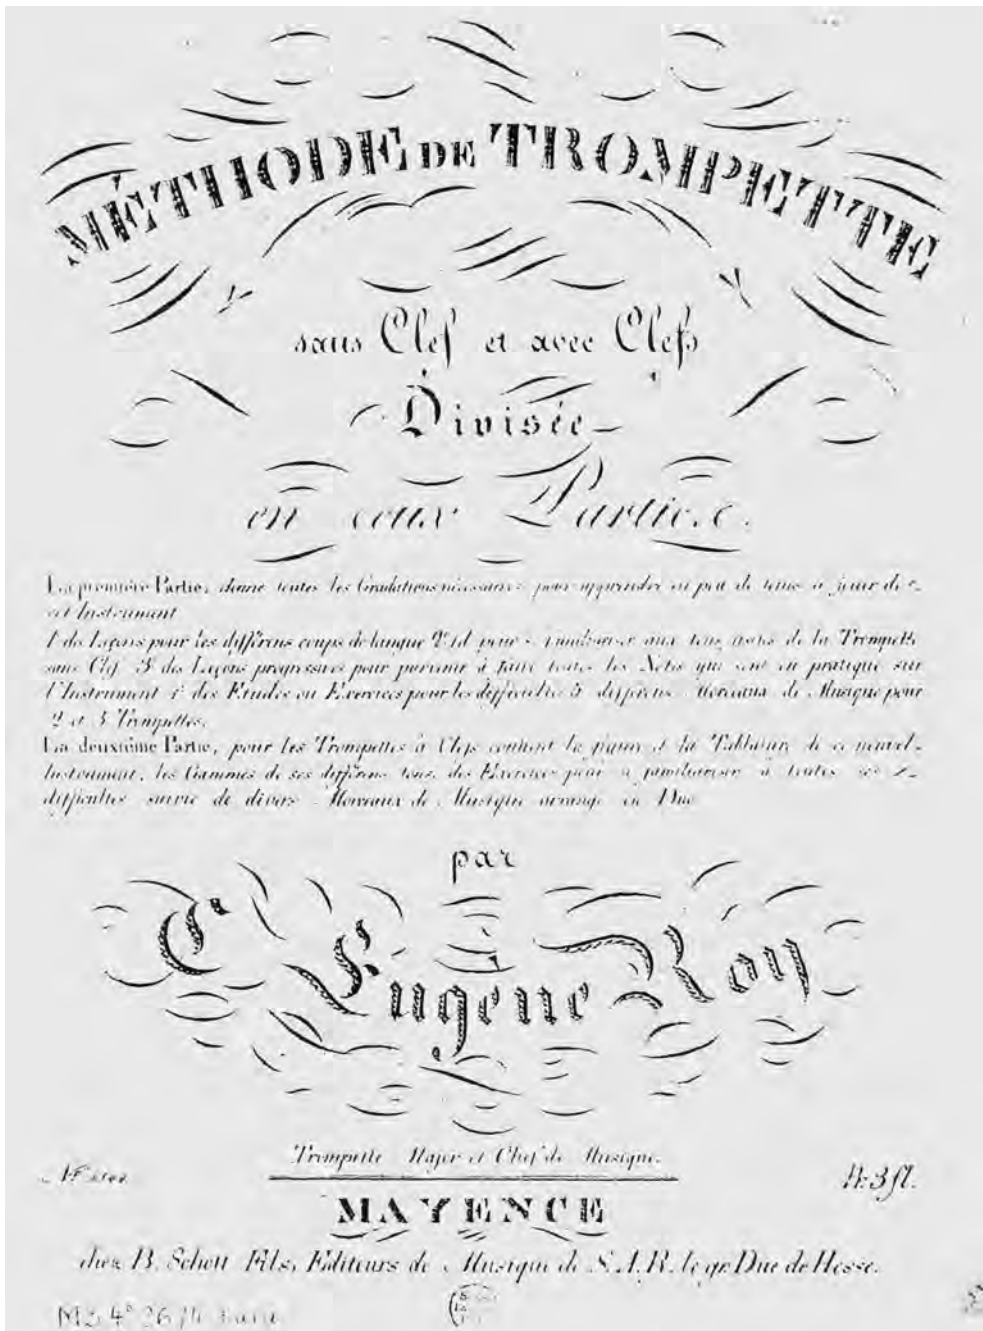 MÉTHODE DE TROMPETTE
sans Clef et avec Clefs
Divisée
en deux Parties.
La première Partie, donne toutes les Gradations nécessaires pour apprendre en peu de tems à jouer de c-
et Instrument
1 des Leçons pour les différens coups de langue 2 id pour familiariser aux tons de la Trompette
sans Clef. 3 des Leçons progressives pour parvenir à faire toutes les Notes qui sont en pratique sur
l'Instrument 4 des Etudes ou Exercices pour les difficultés 5 différens Morceaux de Musique pour
2 et 3 Trompettes.
La deuxième Partie, pour les Trompettes à Clefs contient la figure et la Tablature de ce nouvel-
Instrument, les Gammes de ses différens tons, des Exercices pour se familiariser à toutes ses
difficultés suivie de divers Morceaux de Musique arrangé en Duo
par
C Eugène Roy
Trompette Major et Chef de Musique.
Pr 3 fl.
MAYENCE
chez B. Schott Fils, Editeurs de Musique de S. A. R. le gr. Duc de Hesse.